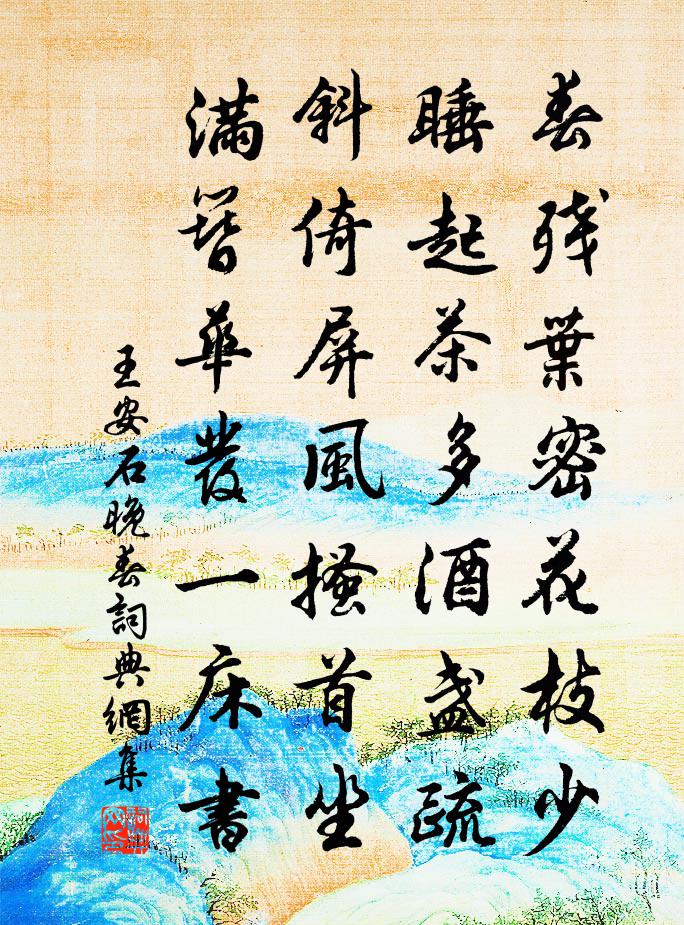 春残葉密花枝少
睡起茶多酒盞疏
斜倚屏風搔首坐
滿簪華發一床書
王安石晚春詞典網集